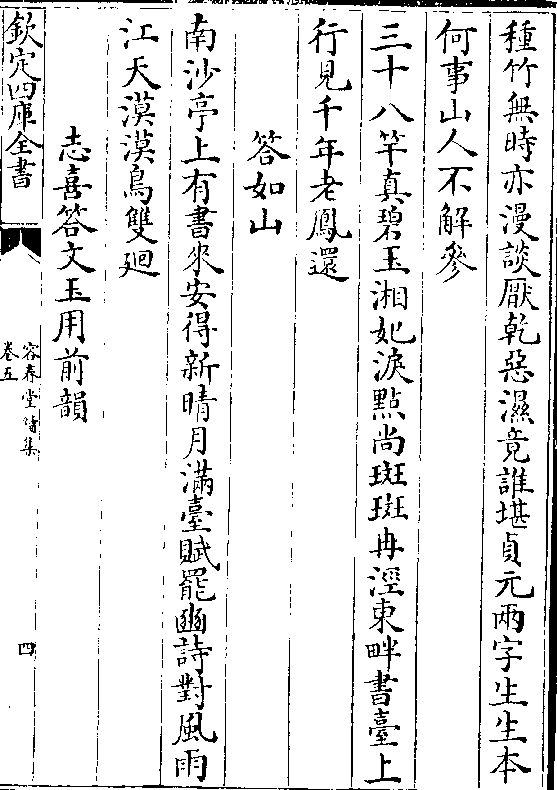 種竹無時亦漫談厭乾惡濕竟誰堪貞元兩字生生本
何事山人不解參
三十八竿真碧玉湘妃淚點尚斑斑冉涇東畔書臺上
行見千年老鳳還
答如山
南沙亭上有書來安得新晴月滿臺賦罷豳詩對風雨
江天漠漠鳥雙廻
志喜答文玉用前韻
欽定四庫全書
容春堂續集
卷五
四